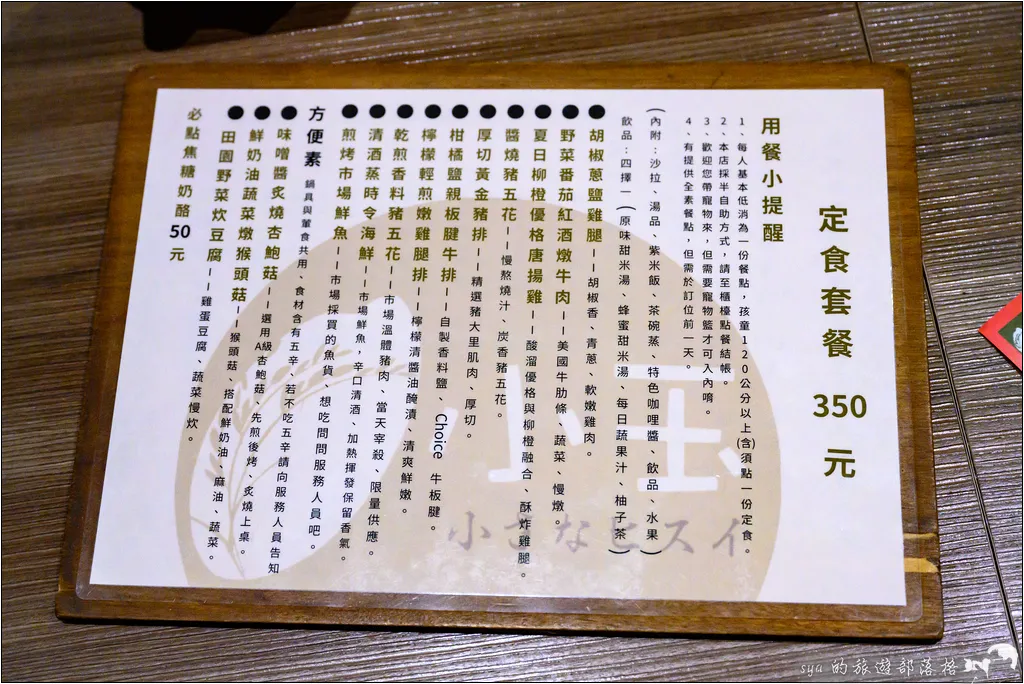 定食套餐 350 元
用餐小提醒
1、每人基本低消為一份餐點，孩童120公分以上(含)須點一份定食。
2、本店採半自助方式，請至櫃檯點餐結帳。
3、歡迎您帶寵物來，但需要寵物籃才可入內唷。
4、有提供全素餐點，但需於訂位前一天。
(內附：沙拉、湯品、紫米飯、茶碗蒸、特色咖哩醬、飲品、水果)
飲品：四擇一(原味甜米湯、蜂蜜甜米湯、每日蔬果汁、柚子茶)
●胡椒蔥鹽雞腿——胡椒香、青蔥、軟嫩雞肉。
●野菜番茄紅酒燉牛肉——美國牛肋條、蔬菜、慢燉。
●夏日柳橙優格唐揚雞——酸溜優格與柳橙融合、酥炸雞腿。
●醬燒豬五花——慢熬燒汁、炭香豬五花。
●厚切黃金豬排——精選豬大里肌肉、厚切。
●柑橘鹽親板腱牛排——自製香料鹽、Choice 牛板腱。
●檸檬輕煎嫩雞腿排——檸檬清醬油醃漬、清爽鮮嫩。
●乾煎香料豬五花——市場溫體豬肉、當天宰殺、限量供應。
●清酒蒸時令海鮮——市場鮮魚，辛口清酒、加熱揮發保留香氣。
●煎烤市場鮮魚——市場採買的魚貨、想吃問問服務人員吧。
方便素 鍋具與葷食共用、食材含有五辛、若不吃五辛請向服務人員告知
●味噌醬炙燒杏鮑菇——選用級A杏鮑菇、先煎後烤、炙燒上桌。
●鮮奶油蔬菜燉猴頭菇——猴頭菇、搭配鮮奶油、麻油、蔬菜。
●田園野菜炊豆腐——雞蛋豆腐、蔬菜慢炊。
必點焦糖奶酪50元
小玉
小さなヒスイ
sya 的旅遊部落格